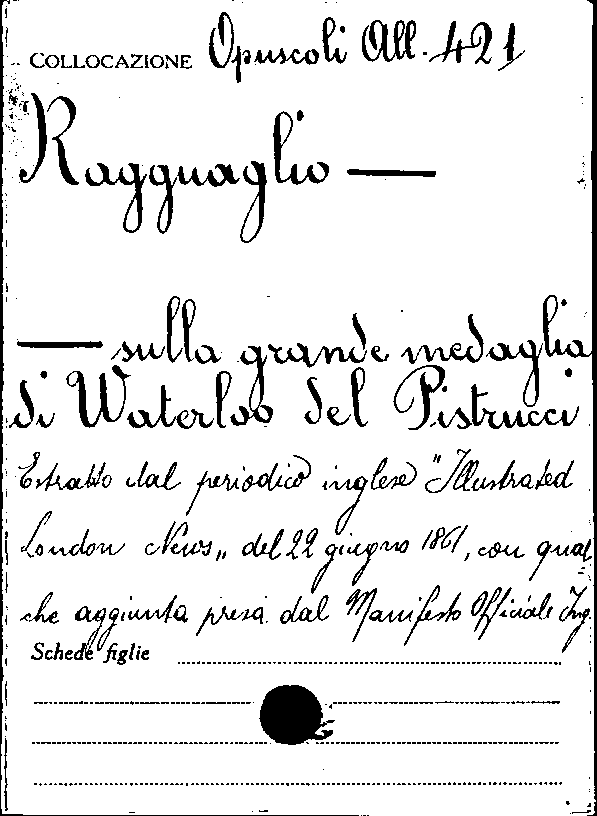 COLLOCAZIONE Opuscoli All. 421
Ragguaglio —
— sulla grande medaglia
di Waterloo del Pistrucci
Estratto dal periodico inglese "Illustrated
London News„ del 22 giugno 1861, con qual
che aggiunta presa dal Manifesto Officiale Ing.
Schede figlie